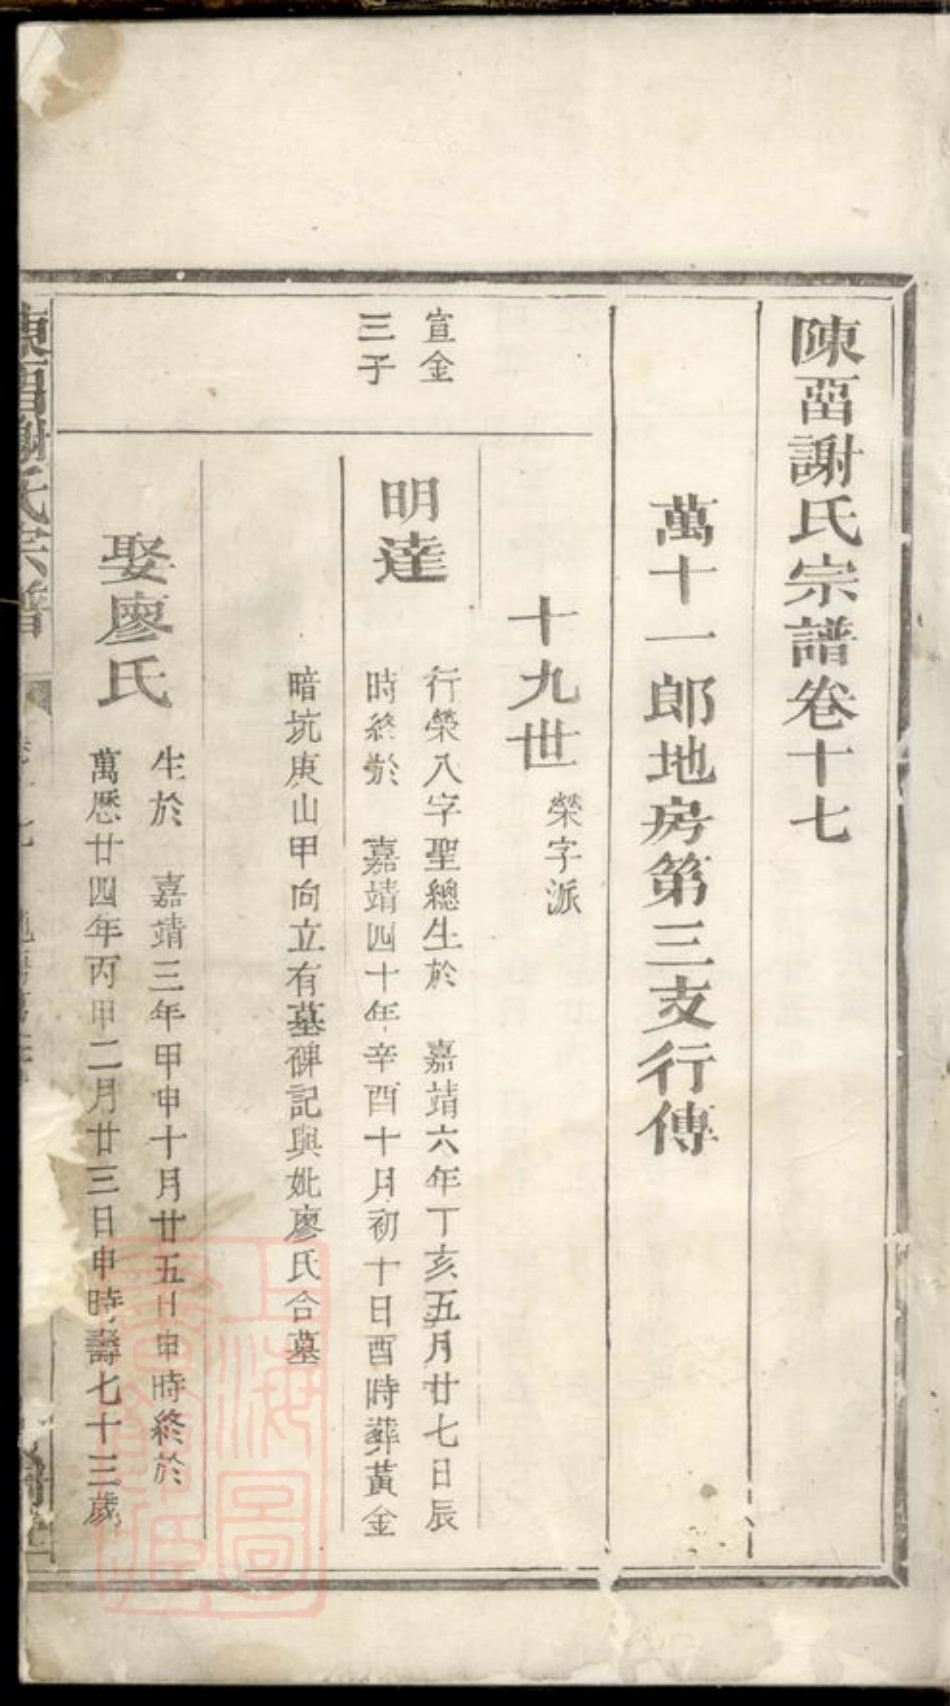 陳畱謝氏宗譜卷十七
萬十一郎地房第三支行傳
十九世 榮字派
宣金
三子
明達
行榮八字聖總生於 嘉靖六年丁亥五月廿七日辰
時終於 嘉靖四十年辛酉十月初十日酉時葬黃金
暗坑庚山甲向立有墓碑記與妣廖氏合墓
娶廖氏
生於 嘉靖三年甲申十月廿五日申時終於
萬歷廿四年丙甲二月廿三日申時壽七十三歲
陳畱謝氏宗譜
上海圖